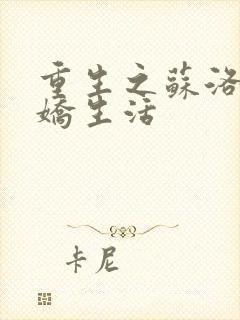 重生之蘇洛
嬌生活
卡尼